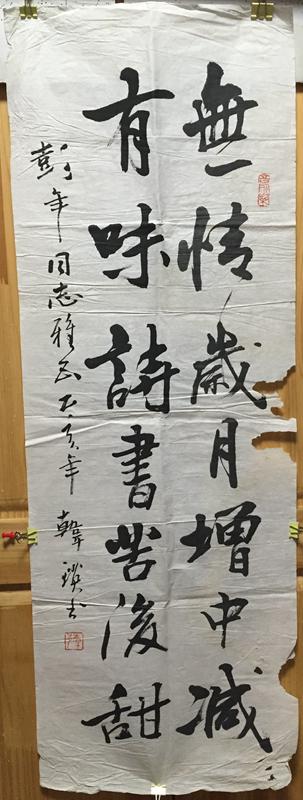 無情歲月增中減
有味詩書苦後甜
彭年同志雅正亥年韓书